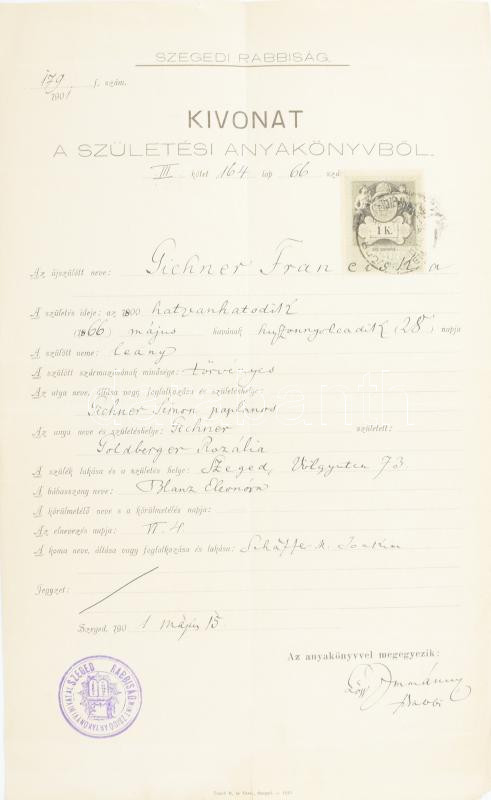 SZEGEDI RABBISÁG.
179 f. szám.
1901
KIVONAT
A SZÜLETÉSI ANYAKÖNYVBŐL.
III kötet 164 lap 66 szá
1 K.
Az újszülött neve: Gichner Franciska
A születés ideje: az 1800 hatvanhatodik
(1866) május havának huszonnyolcadik (28) napja
A szülött neme: leány
A szülött származásának minősége: törvényes
Az atya neve, állása vagy foglalkozása és születéshelye:
Gichner Simon paplanos
Az anya neve és születéshelye: Gichner született:
Goldberger Rozália
A szülők lakása és a születés helye: Szeged, Völgyutca 73.
A bábasszony neve: Blanz Eleonóra
A körülmetélő neve s a körülmetélés napja:
Az elnevezés napja: VI. 4.
A koma neve, állása vagy foglalkozása és lakása: Schäffer
Jegyzet:
Szeged, 1901 május 15
Az anyakönyvvel megegyezik:
Löw Immánuel
rabbi
SZEGED RABBISÁG MINT ZSIDÓ ANYAKÖNYVI HIVATAL